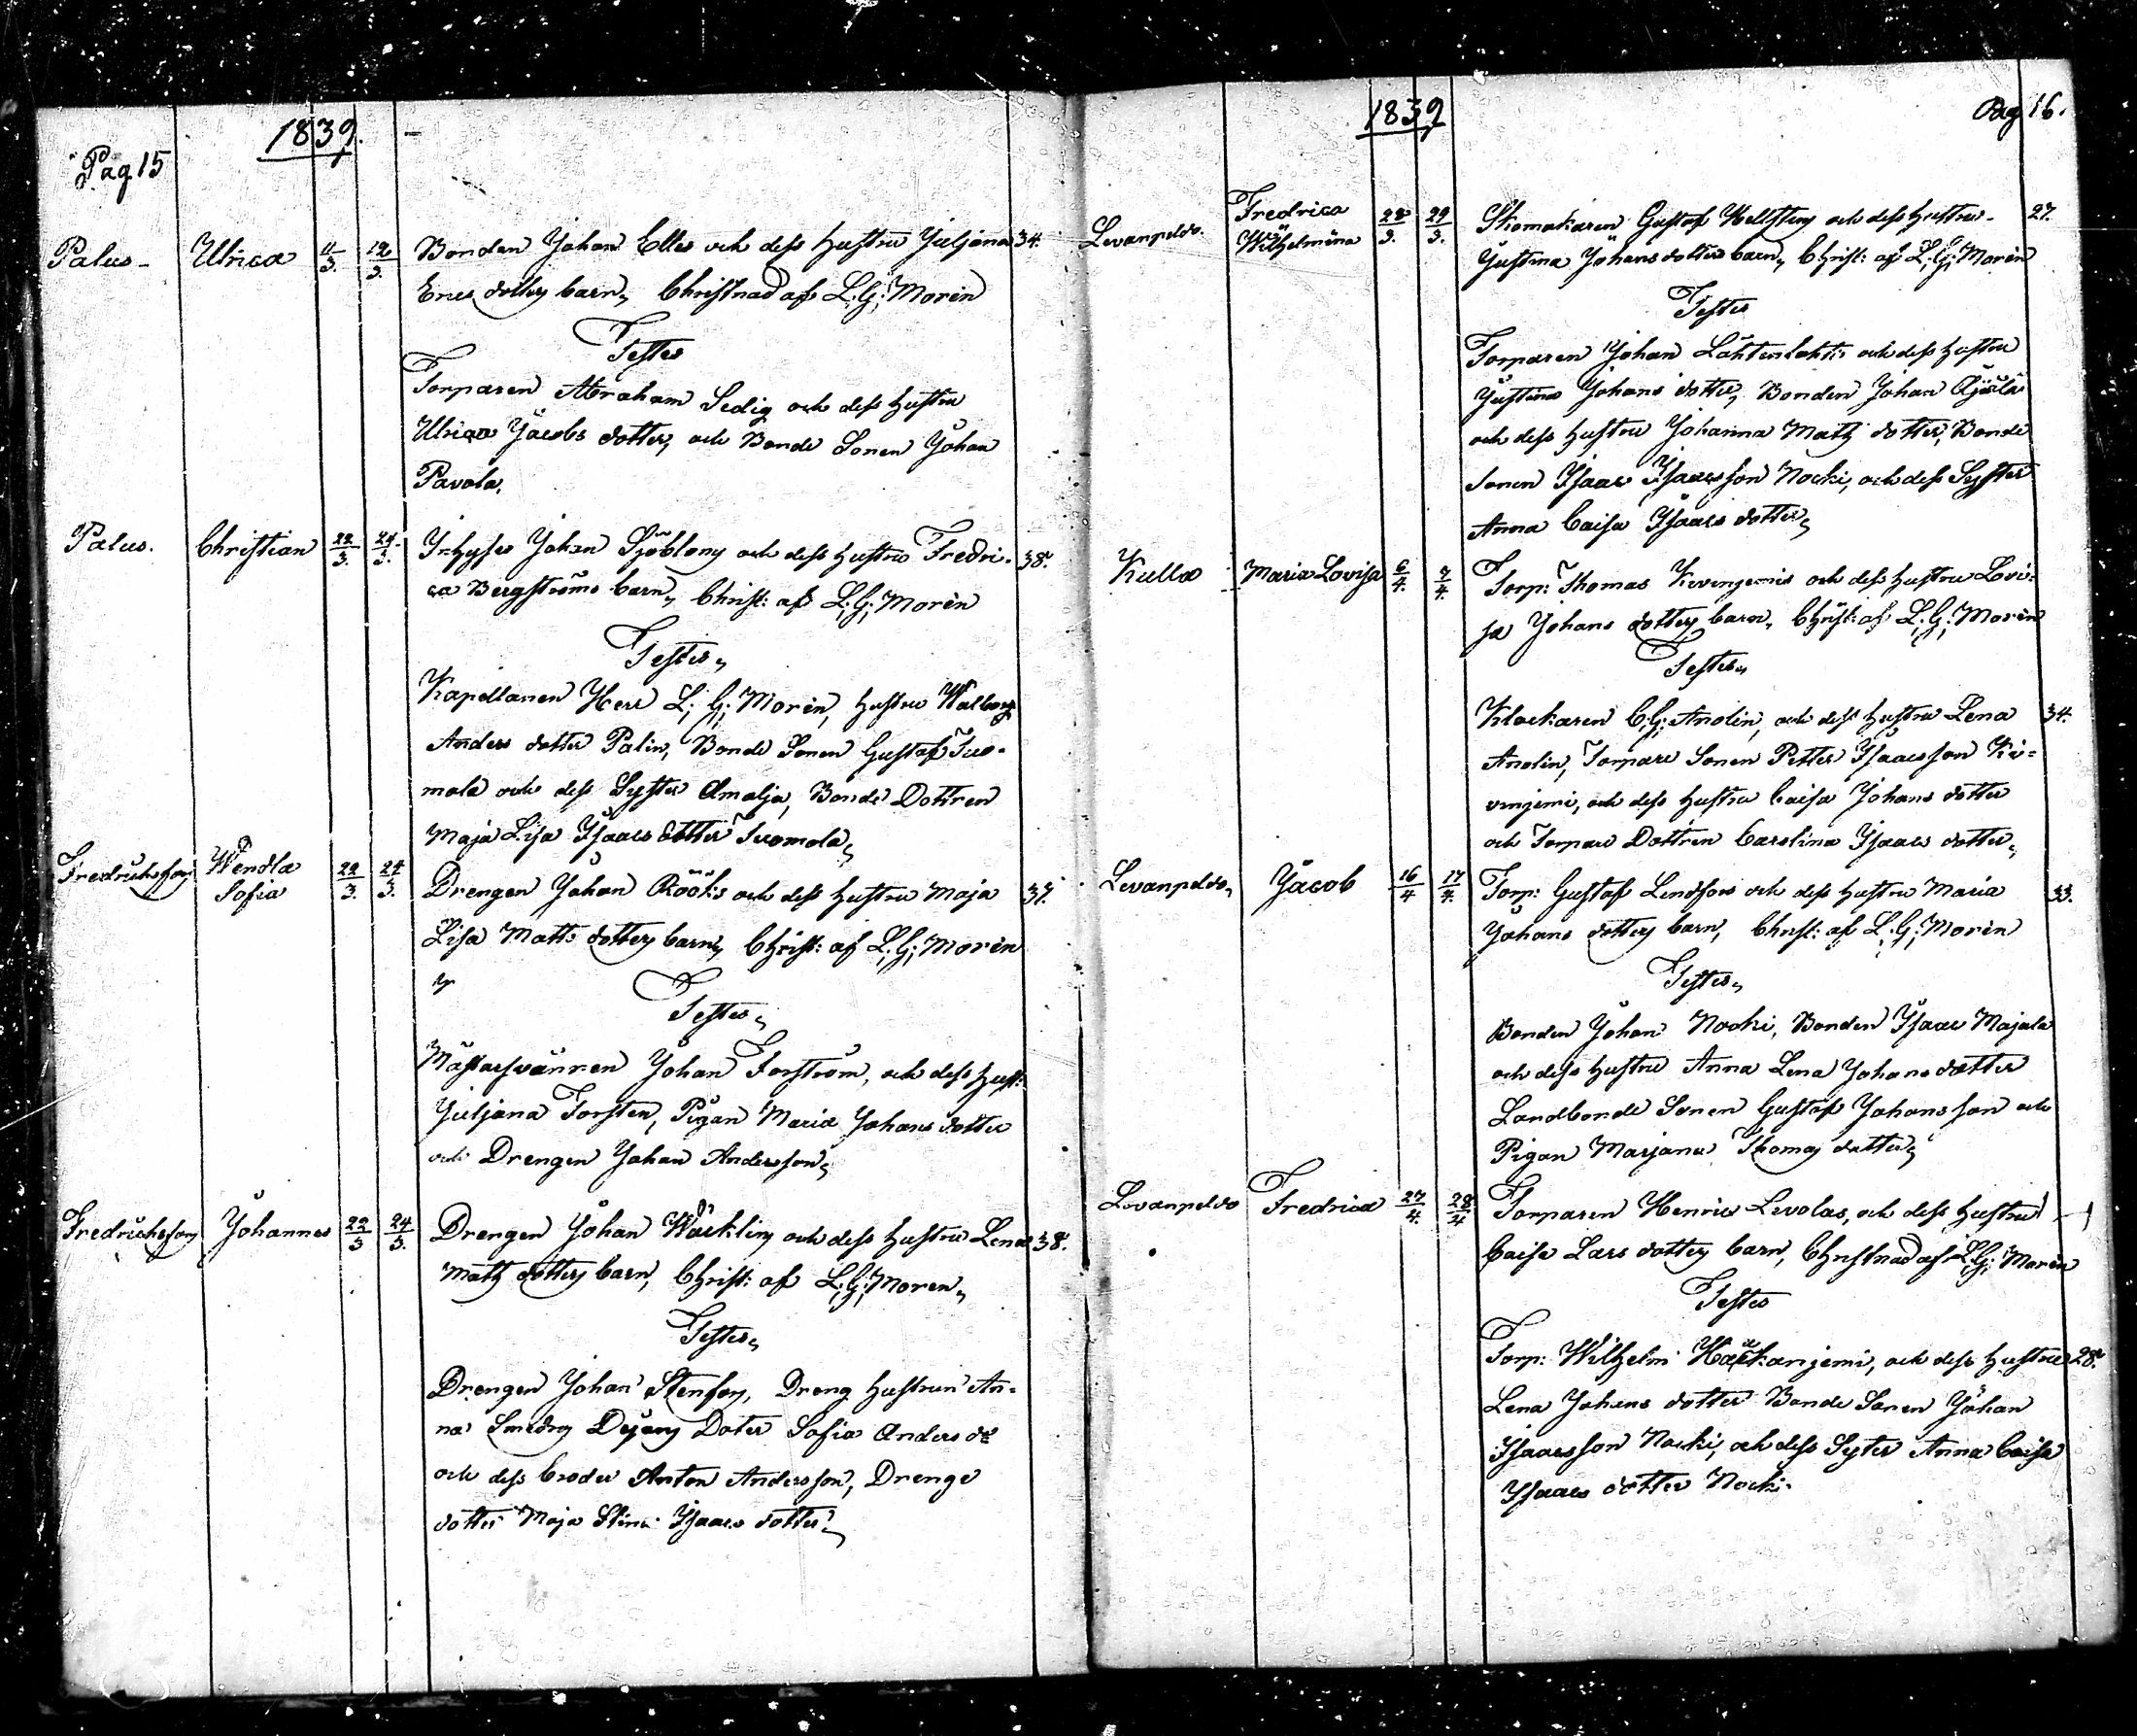 Pag 15
1839.
Palus Ulrica 11/3. 12/3. Bonden Johan Elles och dess Hustru Juljana 34.
Erics dotters barn, Christnad af L: G: Morén
Testes
Torparen Abraham Sedig och dess Hustru
Ulrica Jacobs dotter, och Bonde Sonen Johan
Pavola.
Palus. Christian 22/3. 24/3. Inhyses Johan Sjöblom och dess Hustru Fredri- 38.
ca Bergströms barn, Christ: af L: G: Morén
Testes
Kapellanen Herr L: G: Morén, Hustru Walborg
Anders dotter Palin, Bonde Sonen Gustaf Tuo-
mola och dess Syster Amalja, Bonde Dottren
Maja Lisa Isaacs dotter Tuomola,
Fredrichsfors Wendla 22/3. 24/3. Drengen Johan Rööks och dess Hustru Maja 37.
Sofia
Lisa Matts dotters barn, Christ: af L: G: Morén
Testes
Mästarsvännen Johan Forström, och dess Hust:
Juljana Forsten, Pigan Maria Johans dotter
och Drengen Johan Andersson,
Fredrichsfors Johannes 22/3 24/3. Drengen Johan Wäckling och dess Hustru Lena 38.
Matts dotters barn, Christ: af L: G: Moren,
Testes
Drengen Johan Stenfors, Dreng Hustrun An-
na Smedros Doter Sofia Anders dr
och dess broder Anton Andersson, Drenge
dotter Maja Stina Isaacs dotter,
1839
Pag 16.
Levanpelto. Fredrica 28/3. 29/3. Skomakaren Gustaf Hellsten och dess Hustru 27.
Wilhelmina Justina Johans dotters barn, Christ: af L: G: Morén
Testes
Torparen Johan Lähtenlahti och dess Hustru
Justina Johans dotter, Bonden Johan Äjälä
och dess Hustru Johanna Matts dotter, Bonde
Sonen Isaac Isaacsson Nocki, och dess Syster
Anna Caisa Isaacs dotter,
Kulla Maria Lovisa 6/4. 7/4. Torp: Thomas Kivinjemis och dess Hustru Lovi-
sa Johans dotters barn, Christ: af L: G: Morén
Testes
Klockaren C: G: Anolin, och dess Hustru Lena 34.
Anolin, Torpare Sonen Petter Isaacsson Ki-
vinjemi, och dess Hustru Caisa Johans dotter
och Torpare Dottren Carolina Isaacs dotter,
Levanpelto, Jacob 16/4 17/4. Torp: Gustaf Lindfors och dess Hustru Maria 33.
Johans dotters barn, Christ: af L: G: Morén
Testes
Bonden Johan Nocki, Bonden Isaac Majala
och dess Hustru Anna Lena Johans dotter
Landbonde Sonen Gustaf Johansson och
Pigan Marjana Thomas dotter,
Levanpelto Fredrica 27/4. 28/4 Torparen Henric Levolas, och dess Hustru
Caisa Lars dotters barn, Christnad af L: G: Morén
Testes
Torp: Wilhelm Hackanjemi, och dess Hustru 28.
Lena Johans dotter Bonde Sonen Johan
Isaacsson Nocki, och dess Syter Anna Caisa
Isaacs dotter Nocki.